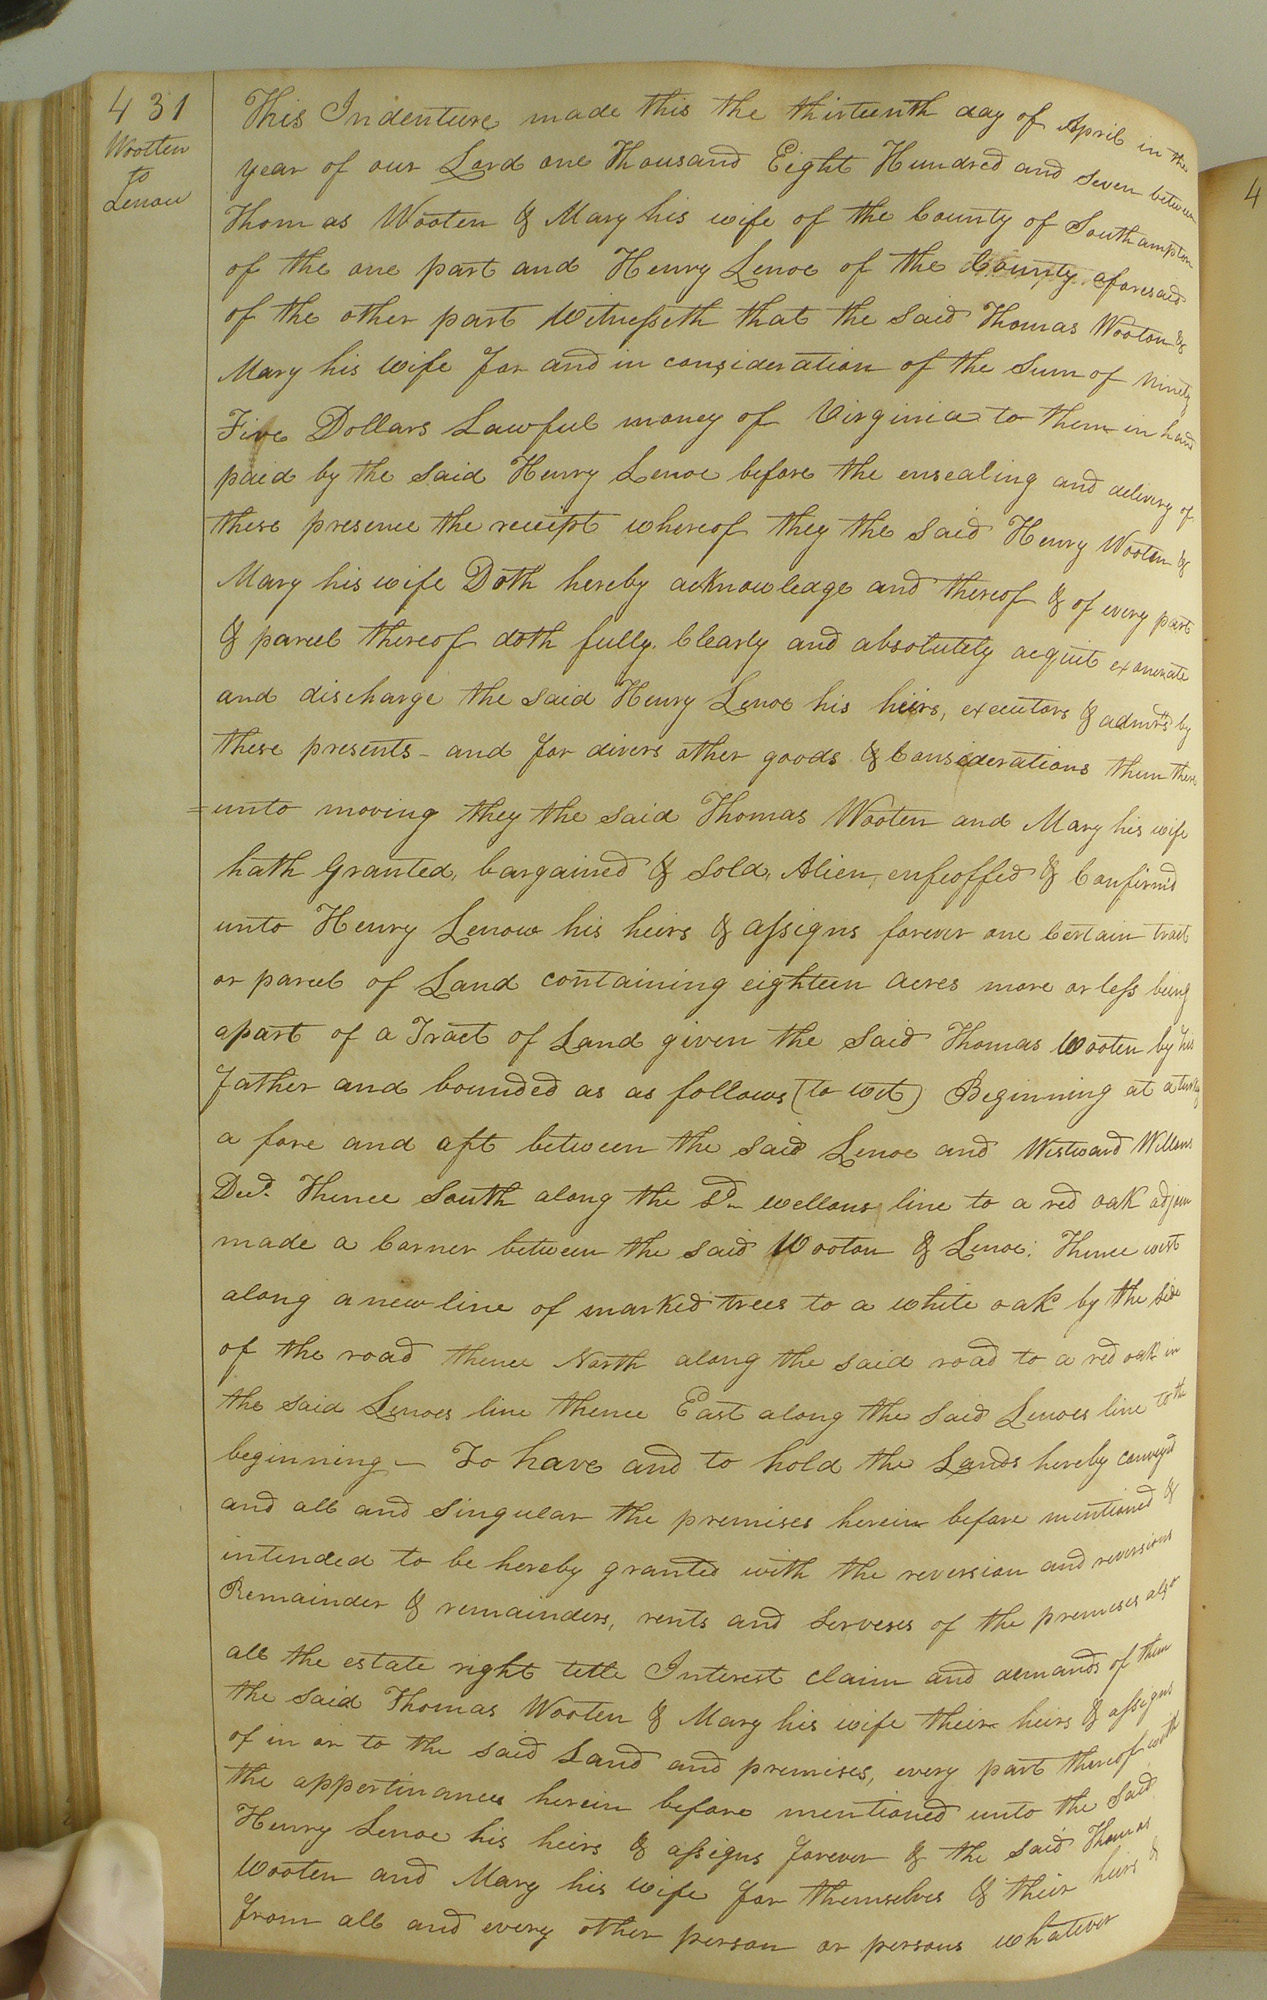 431
Wootten
to
Lenow
This Indenture made this the thirteenth day of April in the
year of our Lord one Thousand Eight Hundred and Seven between
Thomas Wooten & Mary his wife of the County of Southampton
of the one part and Henry Lenoe of the County aforesaid
of the other part Witnesseth that the said Thomas Wooton &
Mary his wife for and in consideration of the Sum of Ninety
Five Dollars Lawful money of Virginia to them in hand
paid by the said Henry Lenoe before the ensealing and delivery of
these presence the receipt whereof they the said Henry Wooten &
Mary his wife Doth hereby acknowledge and thereof & of every part
& parcel thereof doth fully Clearly and absolutely acquit exonerate
and discharge the said Henry Lenoe his heirs, executors & admrs by
these presents - and for divers other goods & Considerations them there
=unto moving they the said Thomas Wooten and Mary his wife
hath Granted, bargained & Sold, Alien, enfeoffed & Confirmd
unto Henry Lenow his heirs & assigns forever one Certain tract
or parcel of Land containing eighteen acres more or less being
apart of a Tract of Land given the said Thomas Wooten by his
father and bounded as as follows (to wit) Beginning at a
a fore and aft between the said Lenoe and Westward Wellons
Decd. Thence South along the sd wellons line to a red oak
made a Corner between the said Wooton & Lenoe: Thence west
along a new line of marked trees to a white oak by the side
of the road thence North along the said road to a red oak in
the said Lenoes line thence East along the said Lenoes line to the
beginning - To have and to hold the Lands hereby conveyed
and all and singular the premises herein before mentioned &
intended to be hereby granted with the reversion and reversions
Remainder & remainders, rents and Serveses of the premeses also
all the estate right title Interest claim and demands of them
the said Thomas Wooten & Mary his wife their heirs & assigns
of in or to the said Land and premises, every part thereof with
the appertinances herein before mentioned unto the Said
Henry Lenoe his heirs & assigns forever & the said Thomas
Wooten and Mary his wife for themselves & their heirs &
from all and every other person or persons whatever
4